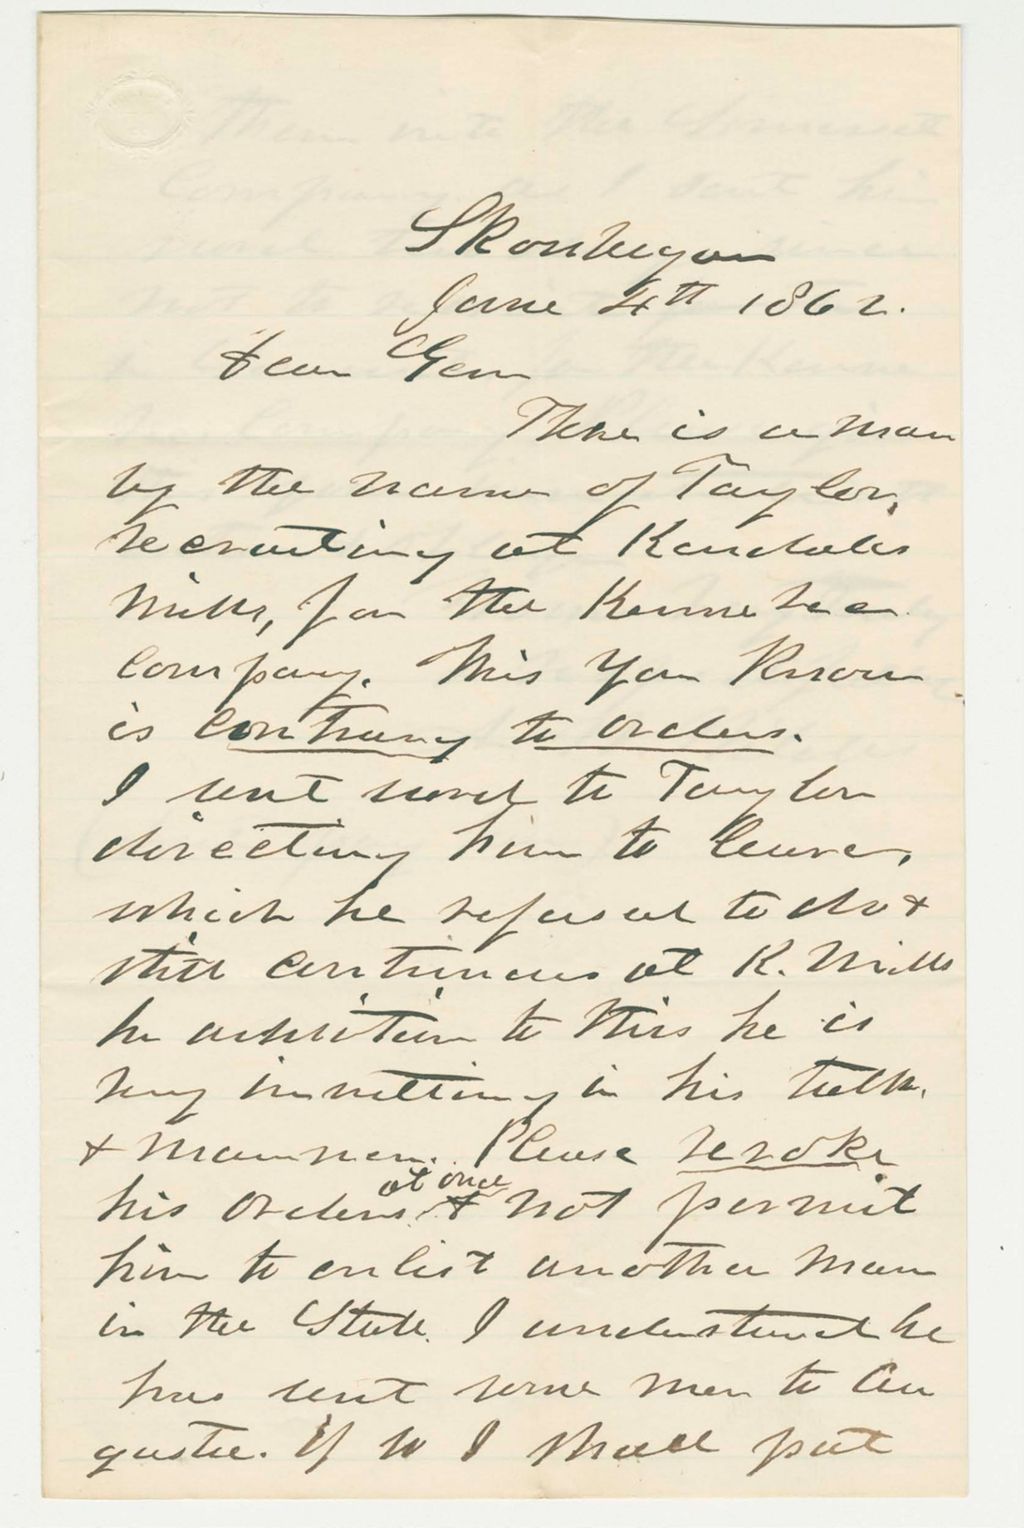 Skowhegan
June 4th 1862.
Dear Gen
There is a man
by the name of Taylor,
recruiting at Kendalls
Mills, for the Kennebec
company. This you know
is contrary to orders.
I sent word to Taylor
directing him to leave,
which he refused to do &
still continues at K. Mills
In addition to this he is
very insulting in his talk.
& manner. Please revoke
his orders at once & not permit
him to enlist another man
in the State. I understand he
has sent some men to Au
gusta. If so I shall put